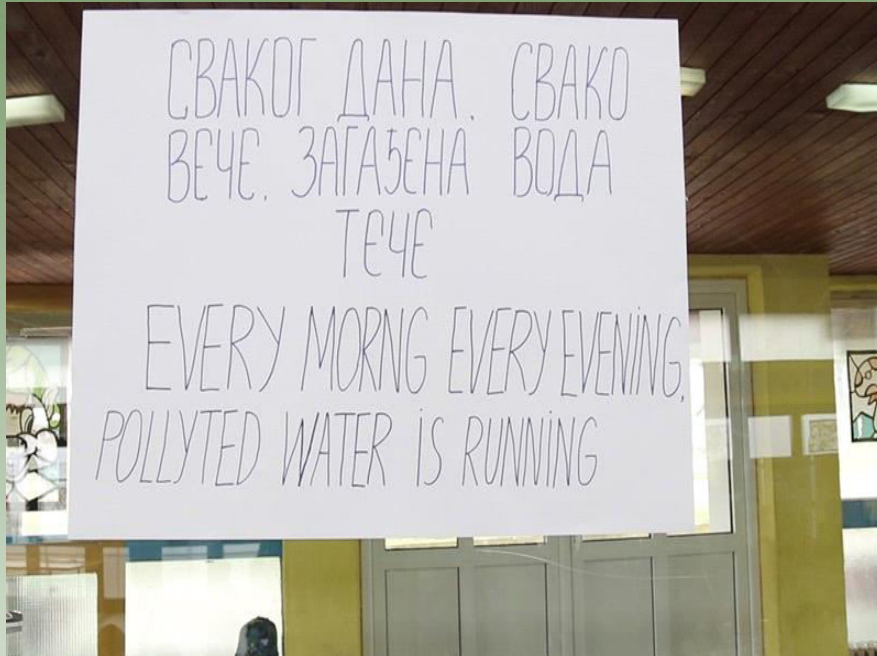 СВАКОГ ДАНА. СВАКО
ВЕЧЕ. ЗАГАЂЕНА ВОДА
ТЕЧЕ
EVERY MORNG EVERY EVENING.
POLLYTED WATER iS RUNNING